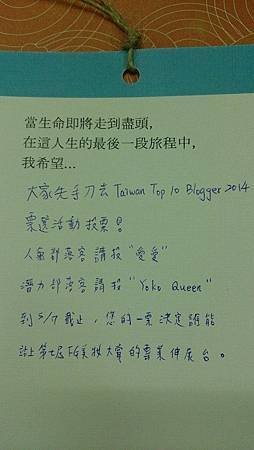 當生命即將走到盡頭,
在這人生的最後一段旅程中,
我希望...
大家先手刀去 Taiwan Top 10 Blogger 2014
票選活動投票！
人氣部落客請投“愛愛”
潛力部落客請投“Yoko Queen”
到5/7截止，您的一票決定誰能
站上第七屆FG美妝大賞的專業伸展台。